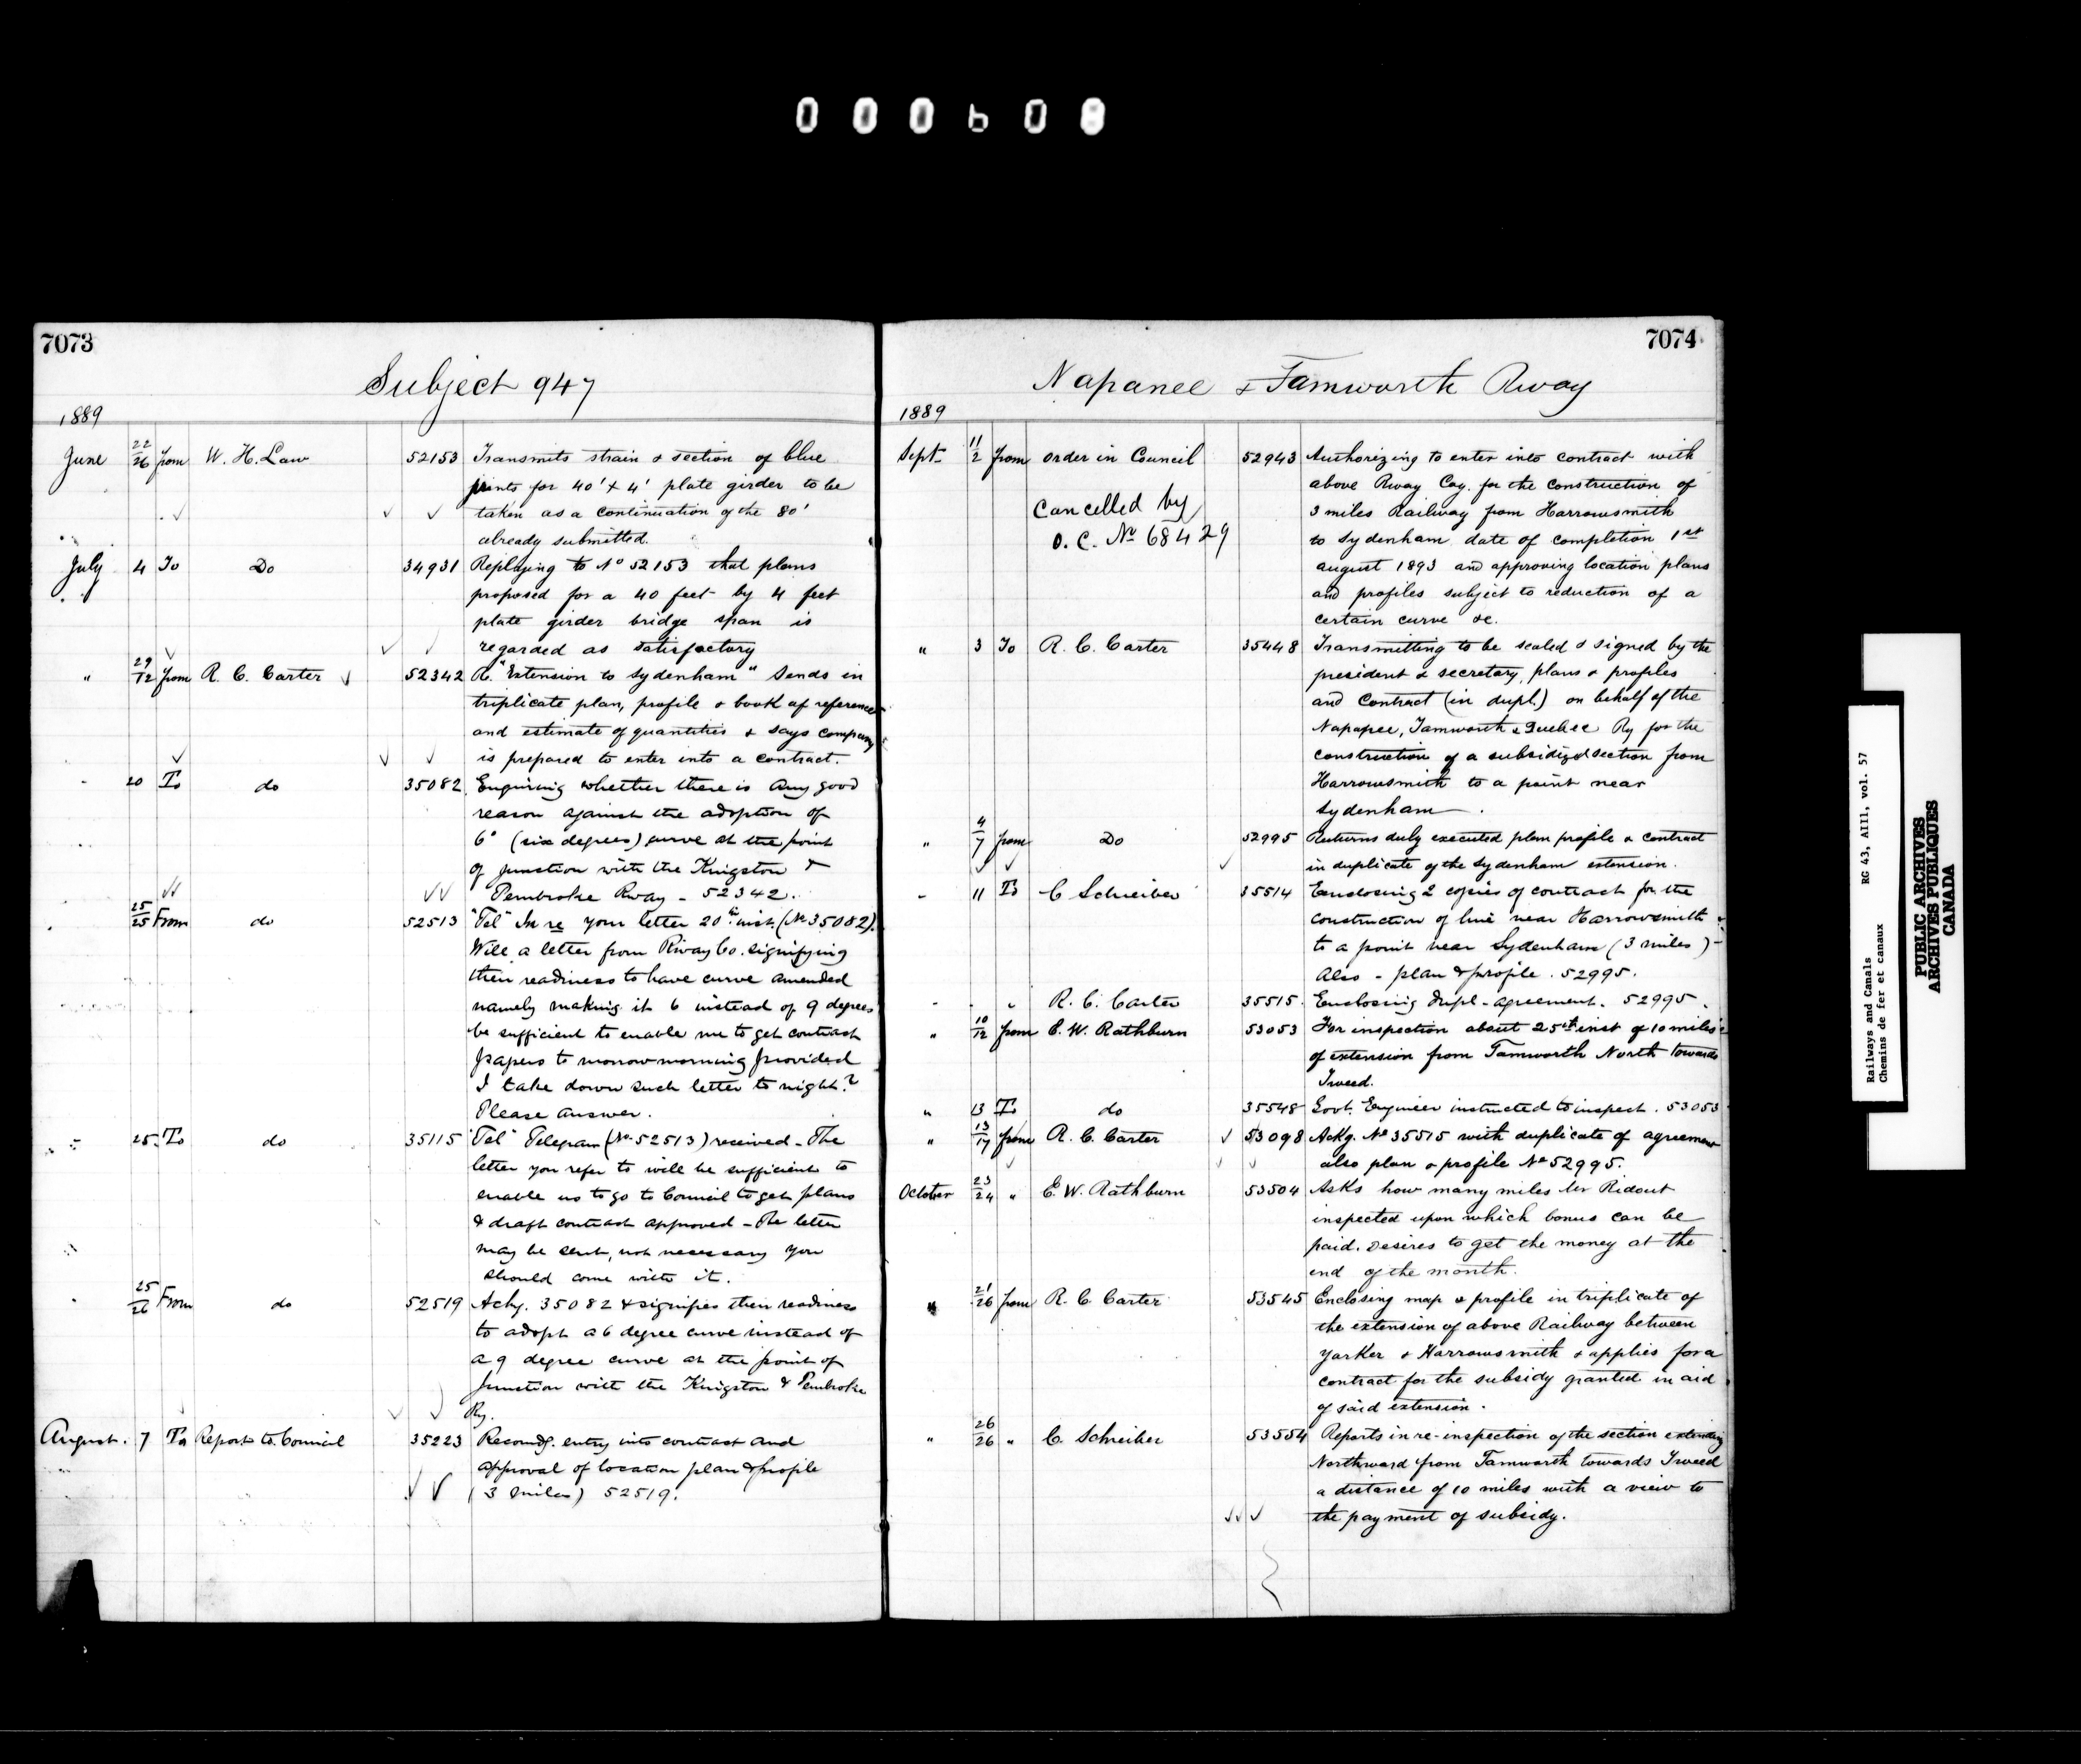 000608
7073
Subject 947
1889
June 22/26 from W. H. Law 52153 Transmits strain & section of blue
prints for 40' x 4' plate girder to be
taken as a continuation of the 80'
already submitted.
July 4 To Do 34931 Replying to No 52153 that plans
proposed for a 40 feet by 4 feet
plate girder bridge span is
regarded as satisfactory
" 29/12 from R. C. Carter 52342 R. "Extension to Sydenham" Sends in
triplicate plan, profile & book of reference
and estimate of quantities & says company
is prepared to enter into a contract.
" 20 To do 35082 Enquiring whether there is any good
reason against the adoption of
6° (six degrees) curve at the point
of junction with the Kingston &
Pembroke Rway - 52342.
25/25 From do 52513 "Tel" In re your letter 20th inst. (No 35082).
Will a letter from Rway Co. signifying
their readiness to have curve amended
namely making it 6 instead of 9 degrees
be sufficient to enable me to get contract
papers to morrow morning provided
I take down such letter to night?
Please answer.
" 25 To do 35115 "Tel" Telegram (No 52513) received - The
letter you refer to will be sufficient to
enable us to go to Council to get plans
& draft contract approved - The letter
may be sent, not necessary you
should come with it.
" 25/26 From do 52519 Ackg. 35082 & signifies their readiness
to adopt a 6 degree curve instead of
a 9 degree curve at the point of
Junction with the Kingston & Pembroke
Ry.
August 7 To Report to Council 35223 Recomdg. entry into contract and
approval of location plan & profile
(3 miles) 52519.
7074
Napanee & Tamworth Rway
1889
Sept 11/2 from order in Council 52943 Authorizing to enter into contract with
above Rway Coy. for the construction of
Cancelled by
O. C. No 68429
3 miles Railway from Harrowsmith
to Sydenham date of completion 1st
august 1893 and approving location plans
and profiles subject to reduction of a
certain curve &c.
" 3 To R. C. Carter 35448 Transmitting to be sealed & signed by the
president & secretary, plans & profiles
and contract (in dupl.) on behalf of the
Napanee, Tamworth & Quebec Ry for the
construction of a subsidized section from
Harrowsmith to a point near
Sydenham.
" 4/7 from Do 52995 Returns duly executed plan profile & contract
in duplicate of the Sydenham extension.
" 11 To C Schreiber 35514 Enclosing 2 copies of contract for the
construction of line near Harrowsmith
to a point near Sydenham (3 miles) -
Also - plan & profile. 52995.
" " " R. C. Carter 35515 Enclosing dupl - agreement. 52995.
" 10/12 from E. W. Rathburn 53053 For inspection about 25th inst of 10 miles
of extension from Tamworth North towards
Tweed.
" 13 To do 35548 Govt. Engineer instructed to inspect. 53053
" 13/17 from R. C. Carter 53098 Ackg. No 35515 with duplicate of agreement
also plan & profile No 52995.
October 23/24 " E. W. Rathburn 53504 Asks how many miles Mr Ridout
inspected upon which bonus can be
paid. Desires to get the money at the
end of the month.
" 21/26 from R. C. Carter 53545 Enclosing map & profile in triplicate of
the extension of above Railway between
Yarker & Harrowsmith & applies for a
contract for the subsidy granted in aid
of said extension.
" 26/26 " C. Schreiber 53554 Reports in re-inspection of the section extending
Northward from Tamworth towards Tweed
a distance of 10 miles with a view to
the payment of subsidy.
Railways and Canals RG 43, AIII, vol. 57
Chemins de fer et canaux
PUBLIC ARCHIVES
ARCHIVES PUBLIQUES
CANADA